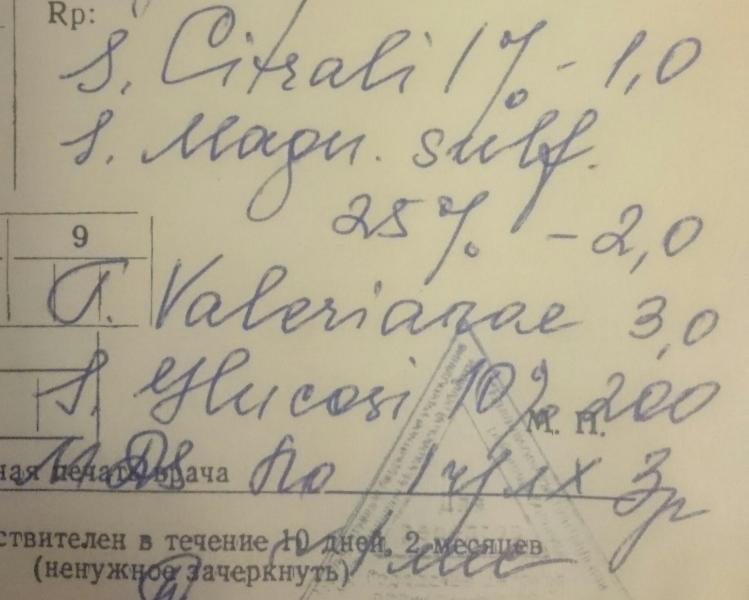 Rp:
S. Citrali 1% - 1,0
S. Magn. sulf.
25% - 2,0
9
T. Valerianae 3,0
S. Glucosi 10% 200
М. П.
ная печать врача
MDS по 1 ч/л х 3 р
ствителен в течение 10 дней, 2 месяцев
(ненужное зачеркнуть)